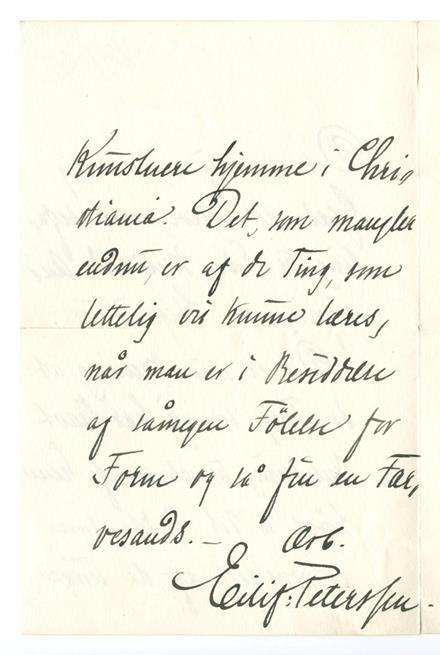 Kunstnere hjemme i Chri-
stiania. Det, som mangler
endnu, er af de Ting, som
lettelig vil kunne læres,
når man er i Besiddelse
af såmegen Fölelse for
Form og så fin en Far-
vesands. – Ærb.
Eilif: Peterssen.